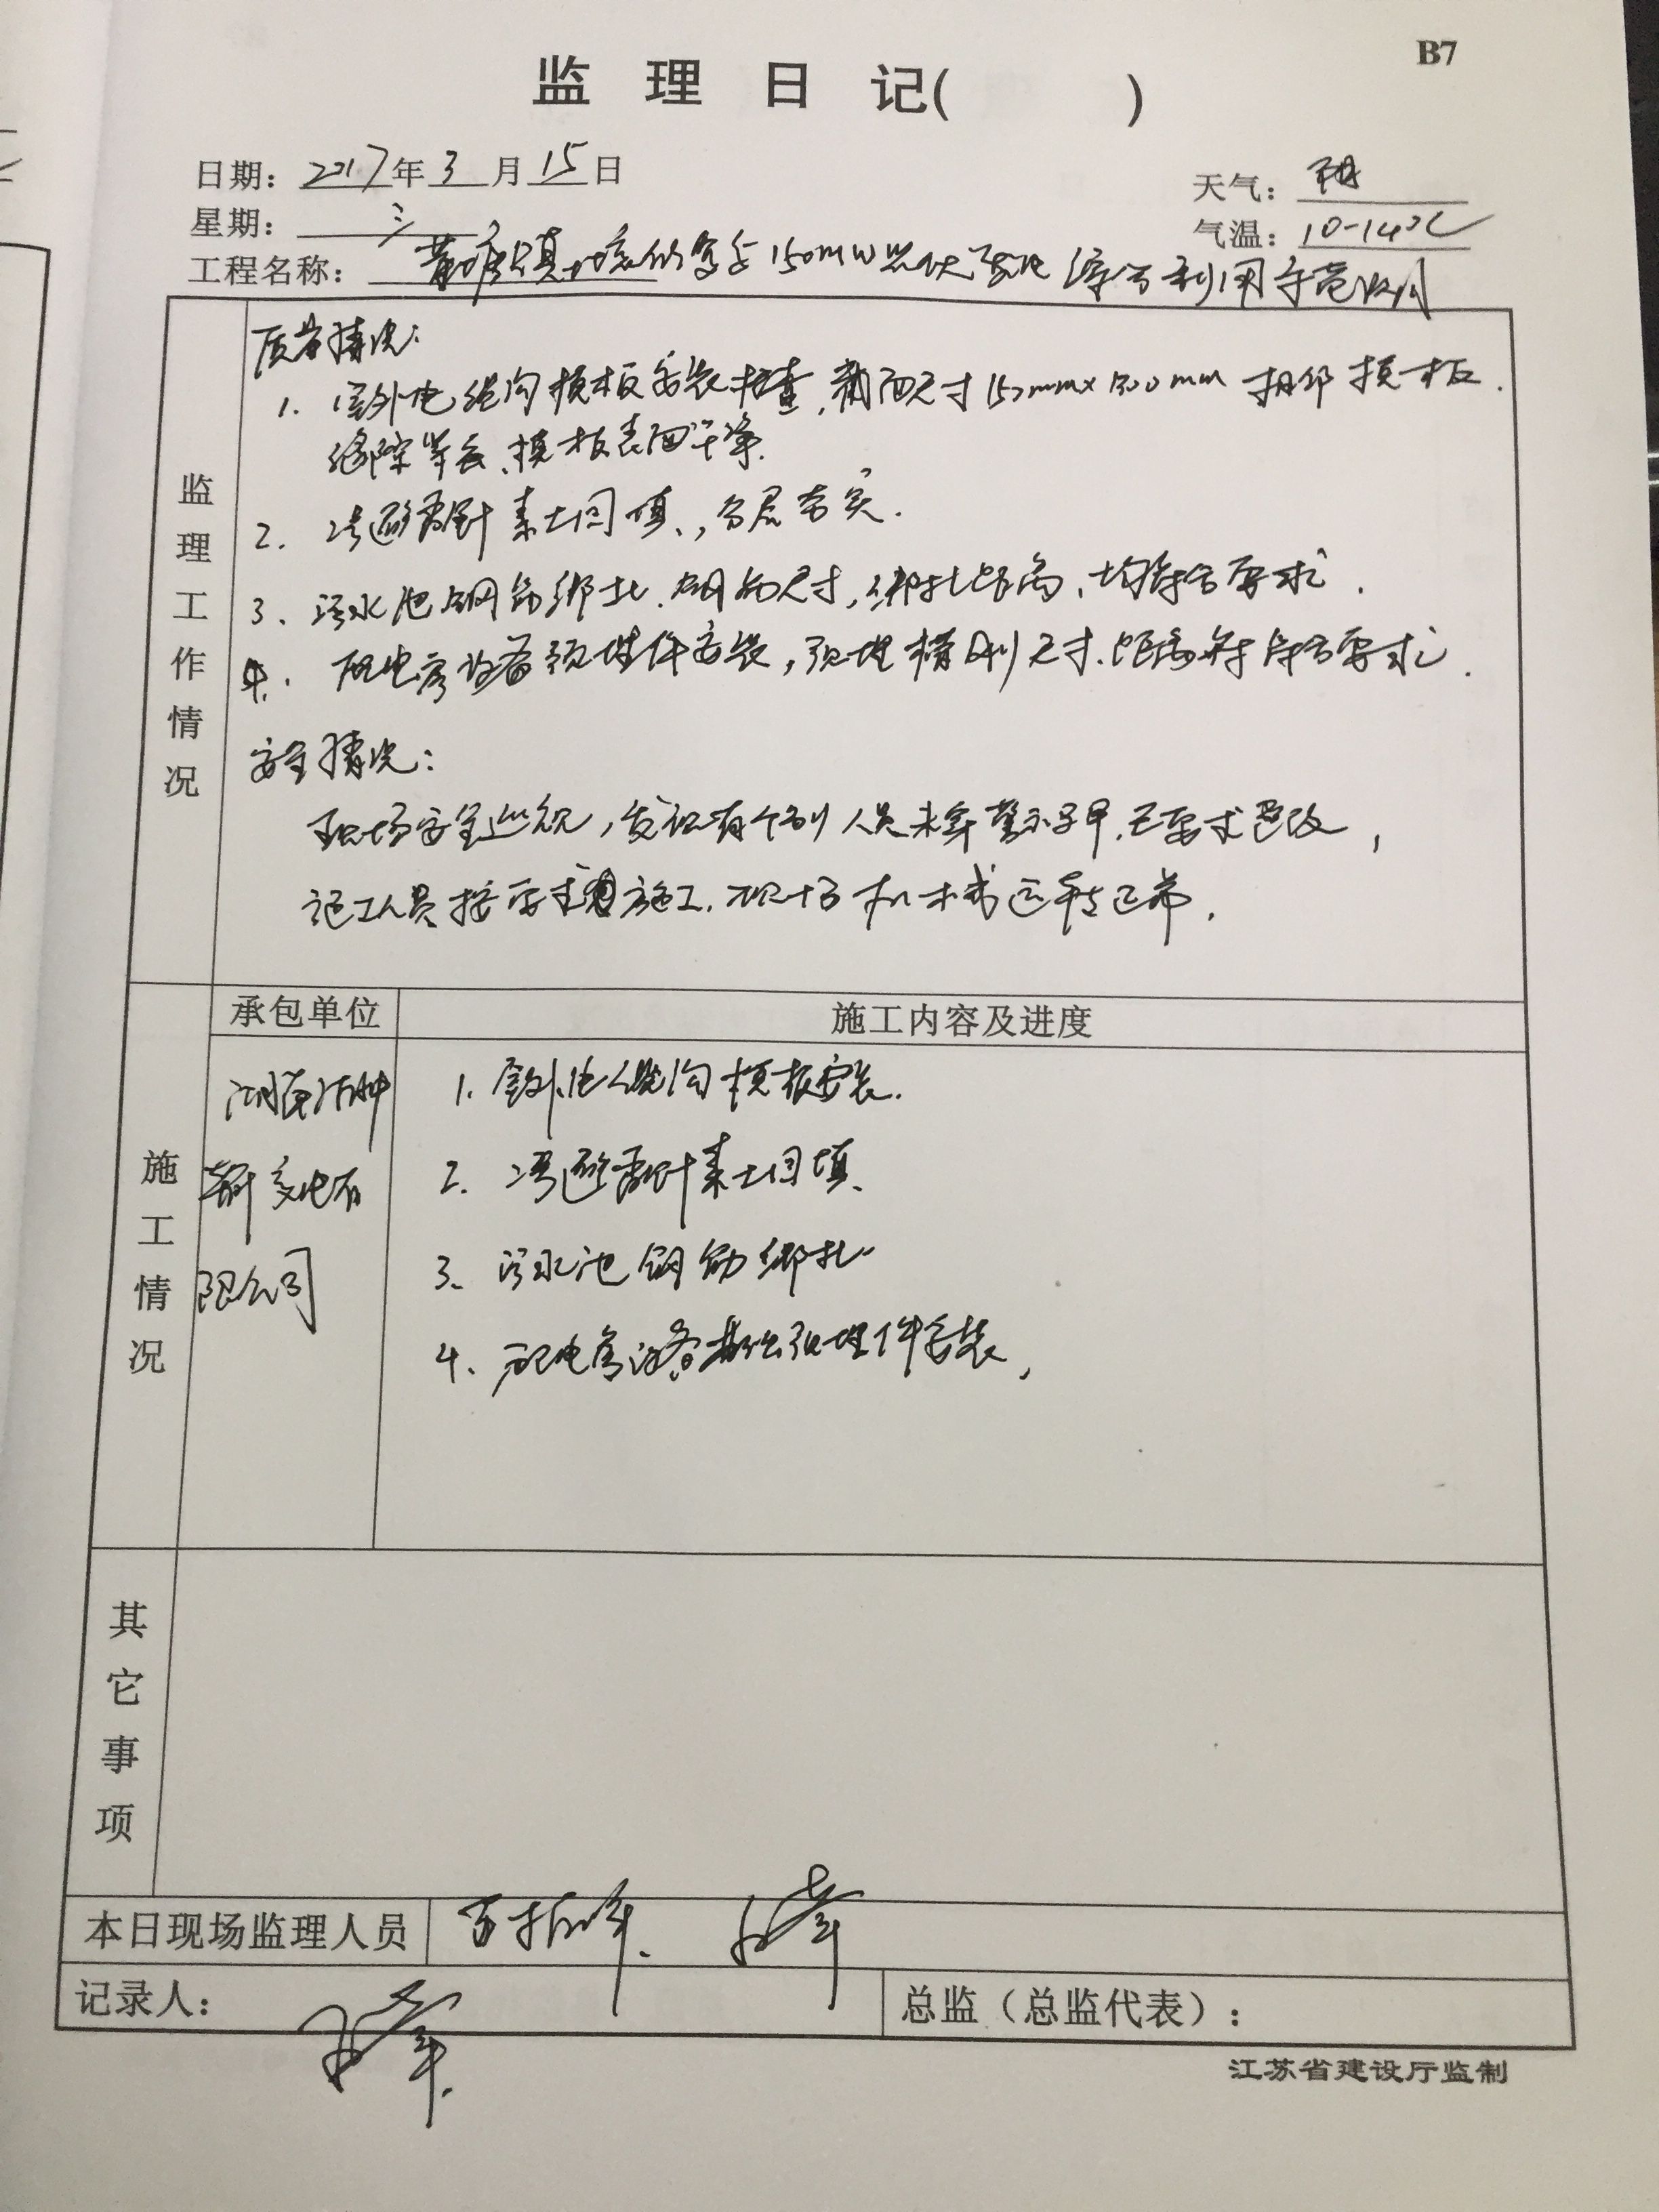 B7
监理日记( )
日期: 2017年3月15日
天气: 阴
星期: 三
气温: 10-14℃
工程名称: 镇 150MW光伏 综合利用示范
监理工作情况
质量情况:
1. 室外电缆沟模板安装检查,截面尺寸 模板
缝隙 、模板表面干净.
2. 2号避雷针素土回填、,分层夯实.
3、污水池钢筋绑扎.钢筋尺寸,绑扎距离、均符合要求.
4. 配电房设备预埋件安装,预埋槽钢尺寸、距离 符合要求.
安全情况:
现场安全巡视,发现有个别人员未穿 ,已要求整改,
施工人员按要求 施工.现场机械运转正常.
施工情况
承包单位
施工内容及进度
湖南
有
限公司
1. 室外电缆沟模板安装.
2. 2号避雷针素土回填、
3、污水池钢筋绑扎
4、配电房设备基础预埋件安装,
其它事项
本日现场监理人员
记录人:
总监(总监代表):
江苏省建设厅监制